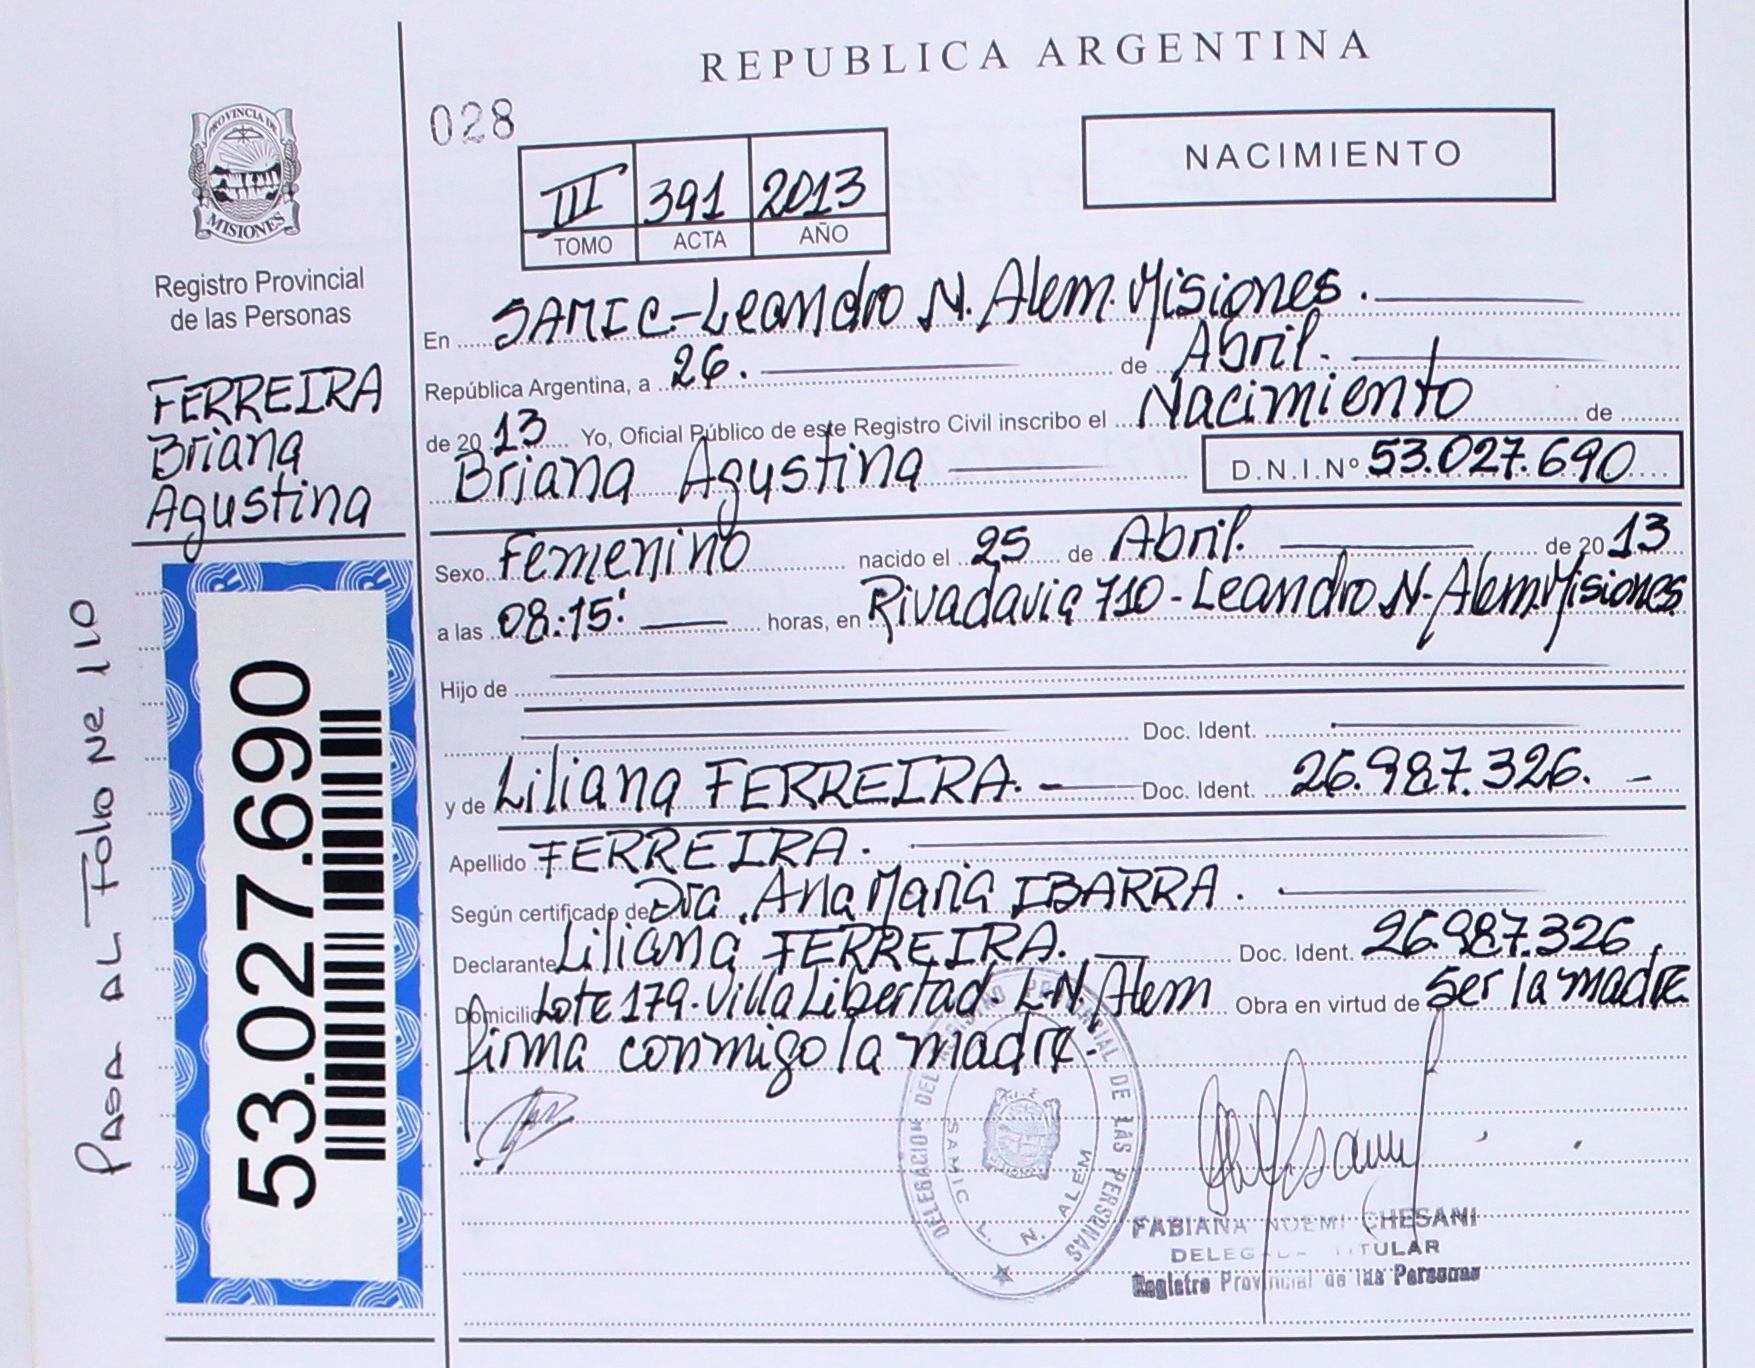 REPUBLICA ARGENTINA
PROVINCIA DE
MISIONES
Registro Provincial
de las Personas
FERREIRA
Briana
Agustina
53.027.690
PASA AL FOLIO Nº 110
028
NACIMIENTO
III 391 2013
TOMO ACTA AÑO
En SAMIC-Leandro N. Alem. Misiones.
República Argentina, a 26. de Abril.
de 2013 Yo, Oficial Público de este Registro Civil inscribo el Nacimiento de
Briana Agustina D.N.I. Nº 53.027.690
Sexo Femenino nacido el 25 de Abril. de 2013
a las 08:15' horas, en Rivadavia 710-Leandro N-Alem. Misiones
Hijo de
Doc. Ident.
y de Liliana FERREIRA. Doc. Ident. 26.987.326.
Apellido FERREIRA.
Según certificado de Dra. Ana Maria IBARRA.
Declarante Liliana FERREIRA. Doc. Ident. 26.987.326.
Domicilio Lote 179-Villa Libertad-L-N. Alem Obra en virtud de Ser la madre
firma conmigo la madre.
DELEGACION DEL REGISTRO PROVINCIAL DE LAS PERSONAS
SAMIC L. N. ALEM
FABIANA NOEMI CHESANI
DELEGADA TITULAR
Registro Provincial de las Personas